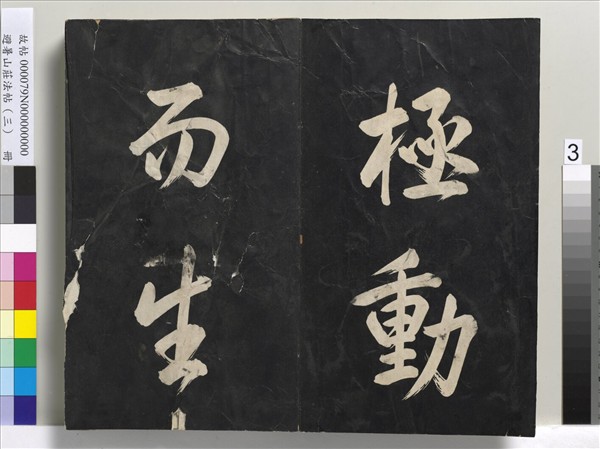 極動
而生
故帖 000079N000000000
避暑山莊法帖（三） 冊
3